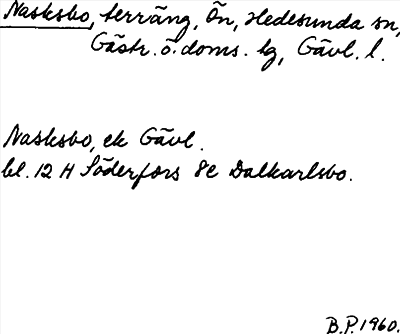 Nasksbo, terräng, Ön, Hedesunda sn,
Gästr. ö. doms. tg, Gävl. l.
Nasksbo, ek Gävl.
bl. 12 H Söderfors 8c Dalkarlsbo.
B.P. 1960.